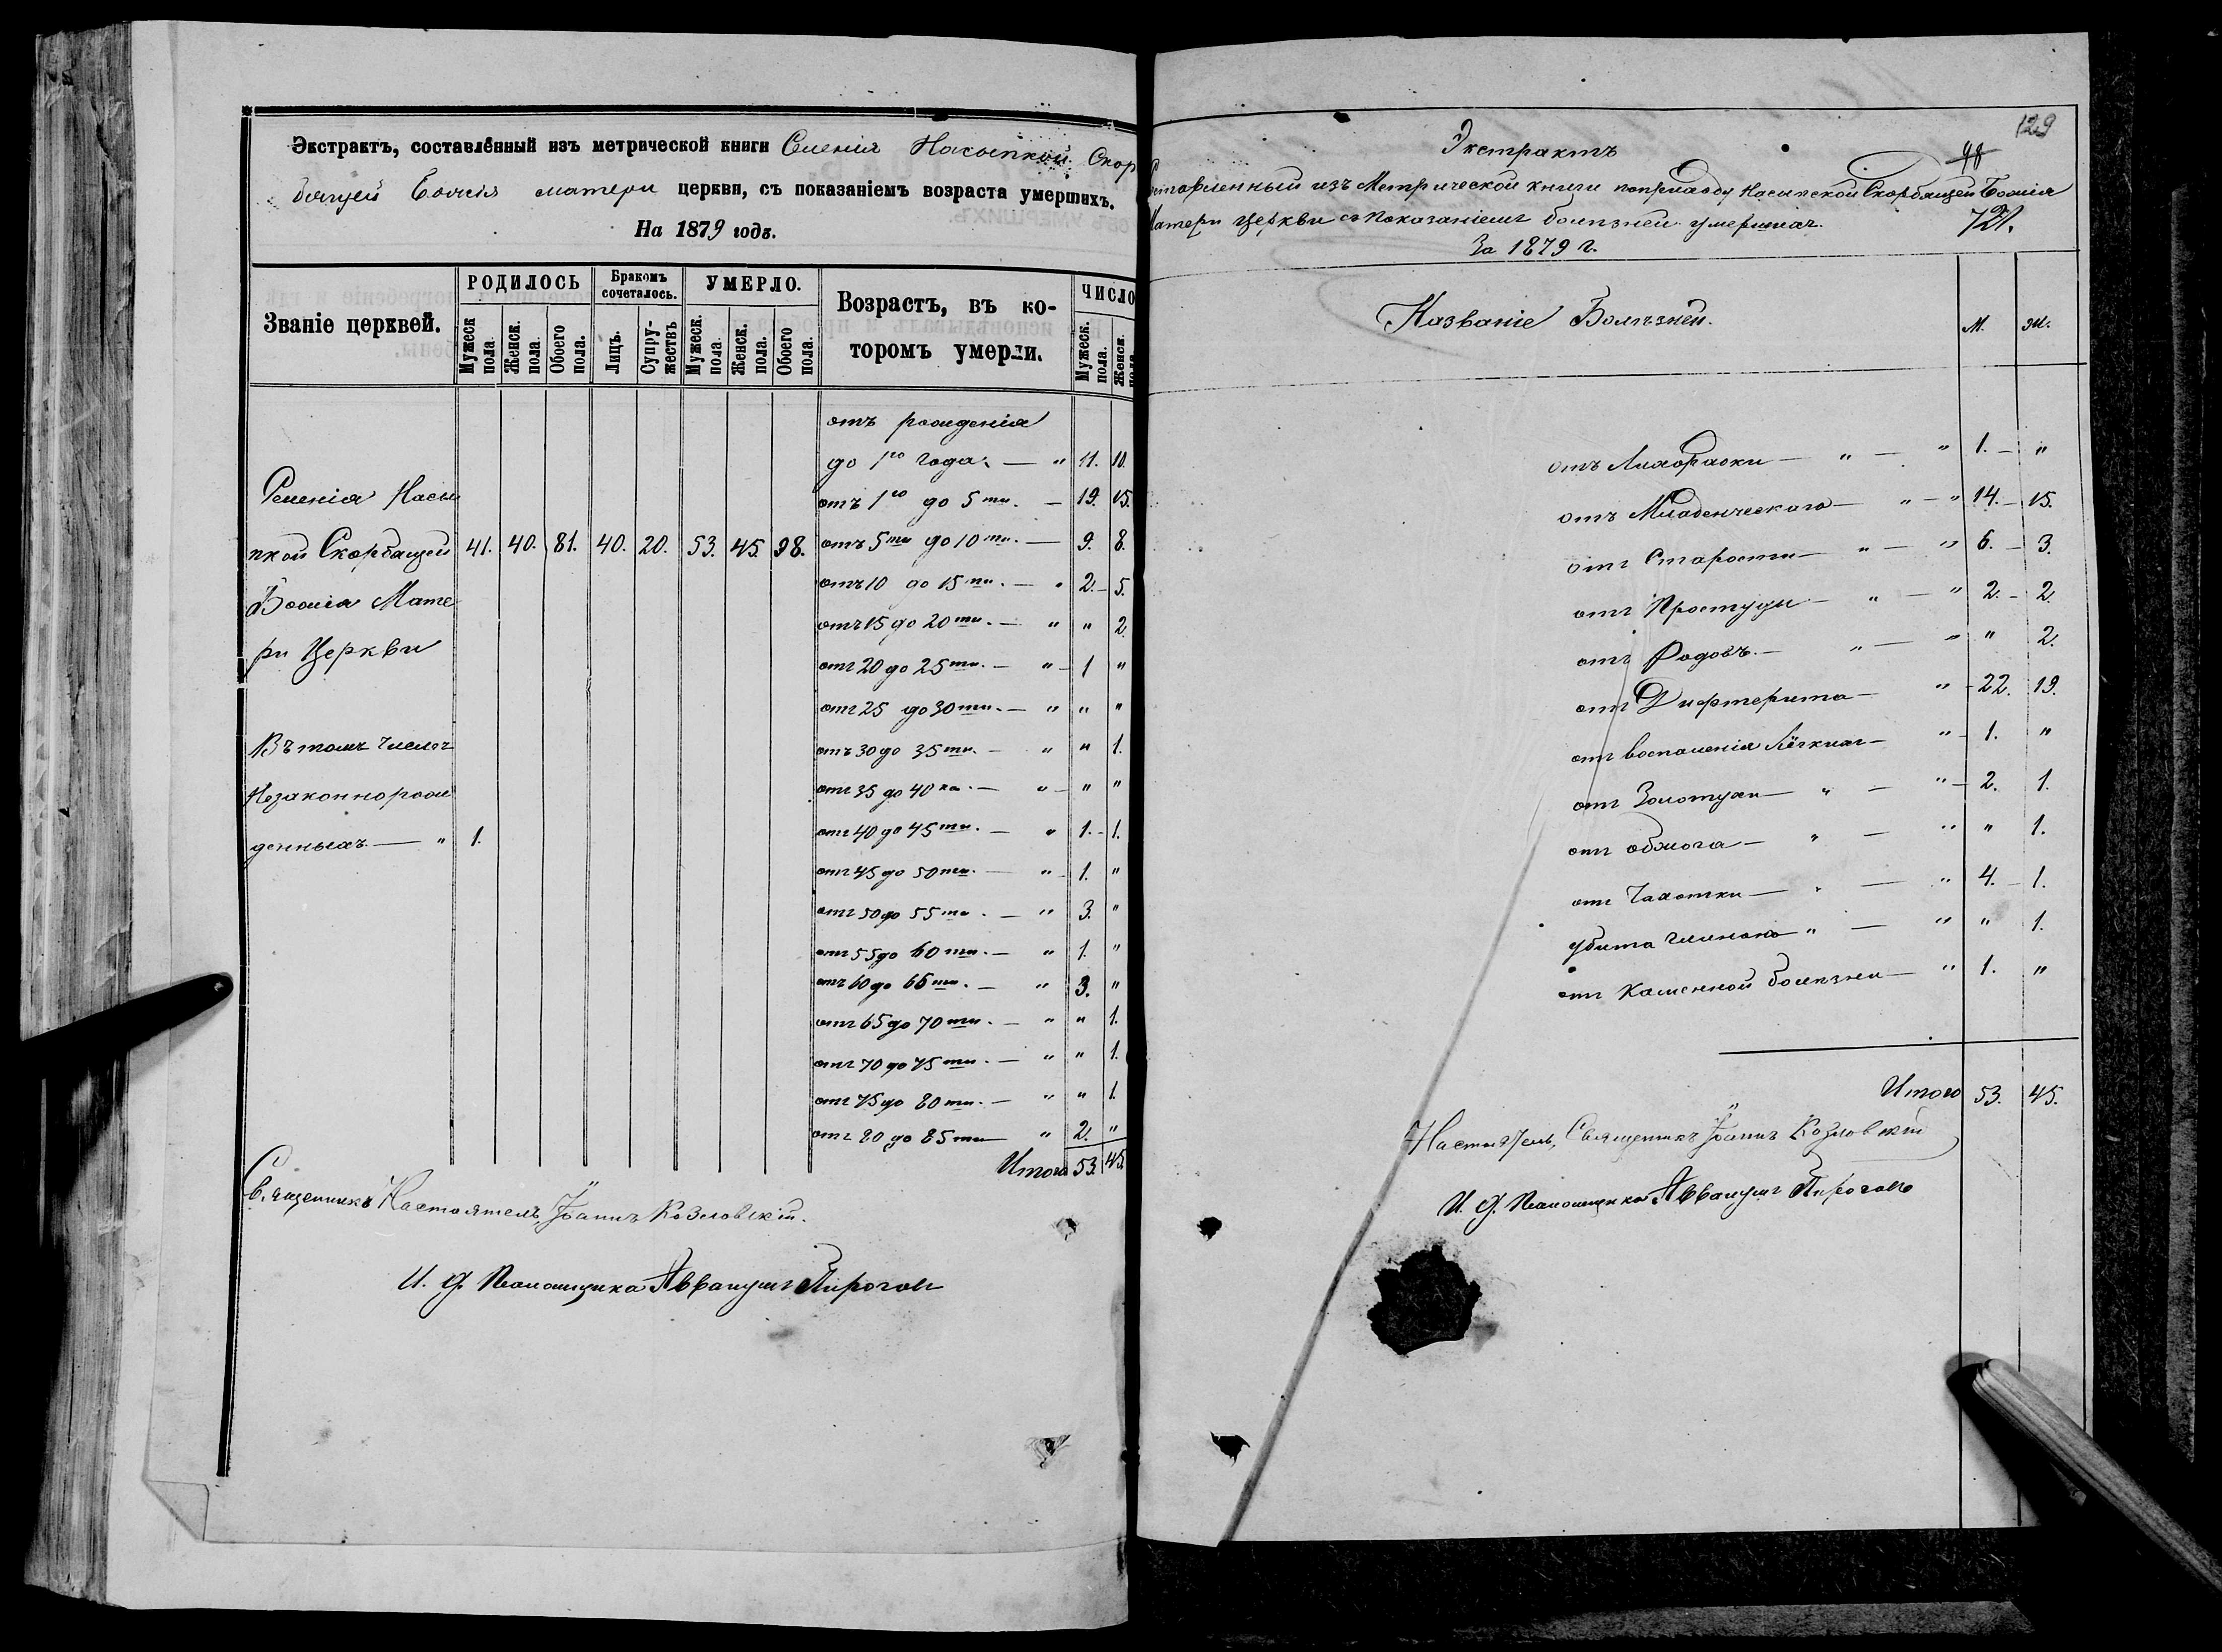 Экстрактъ, составленный изъ метрической книги Селенія Насыпкой Скор
бящей Божія матери церкви, съ показаніемъ возраста умершихъ.
На 1879 годъ.
Званіе церквей.
РОДИЛОСЬ
Бракомъ сочеталось.
УМЕРЛО.
Возрастъ, въ ко-
торомъ умерли.
ЧИСЛО
Мужеск пола.
Женск. пола
Обоего пола.
Лицъ.
Супру-жествъ
Мужеск. пола.
Женск. пола.
Обоего пола.
Мужеск. пола.
Женск. пола
отъ рожденія
до 1го года. — " 11. 10.
Селенія Насы
отъ 1го до 5ти. — 19. 15.
пкой Скорбящей 41. 40. 81. 40. 20. 53. 45. 98. отъ 5ти до 10ти. — 9. 8.
отъ 10 до 15ти. — " 2. — 5.
Божія Мате
отъ 15 до 20ти. — " " 2.
ри Церкви
отъ 20 до 25ти. — " — 1 "
отъ 25 до 30ти. — " " "
Въ томъ числѣ
отъ 30 до 35ти. — " " 1.
Незаконнорож
отъ 35 до 40ка. — " — " "
отъ 40 до 45ти. — " 1. — 1.
денныхъ — " 1.
отъ 45 до 50ти. — " — 1. "
отъ 50 до 55ти. — " 3. "
отъ 55 до 60ти. — " 1. "
отъ 60 до 65ти. — " 3. "
отъ 65 до 70ти. — " " 1.
отъ 70 до 75ти. — " " 1.
отъ 75 до 80ти. — " " 1.
отъ 80 до 85ти — " 2. "
Итого 53. 45.
Священникъ Настоятель, Іоаннъ Козловскій.
И. д. Псаломщика Авваkумъ Пироговъ
129
98
Экстрактъ
составленный изъ Метрической книги по приходу Насыпской Скорбящей Божія
Матери Церкви съ показаніемъ болѣзней умершихъ.
721.
За 1879 г.
Названіе Болѣзней. М. Ж.
отъ Лихорадки — " — " 1. — "
отъ Младенческаго — " — " 14. — 15.
отъ Старости — " — " 6. — 3.
отъ Простуды — " — " 2. — 2.
отъ Родовъ. — " — " " 2.
отъ Дифтерита — " — 22. 19.
отъ воспаленія Лёгкихъ — " — 1. "
отъ Золотухи — " — " — 2. 1.
отъ обжога — " — " " 1.
отъ Чахотки — " — " 4. — 1.
убита " — " " 1.
отъ Каменной болѣзни — " 1. "
Итого 53. 45.
Настоятель, Священникъ Іоаннъ Козловскій
И. д. Псаломщика Аввакумъ Пироговъ